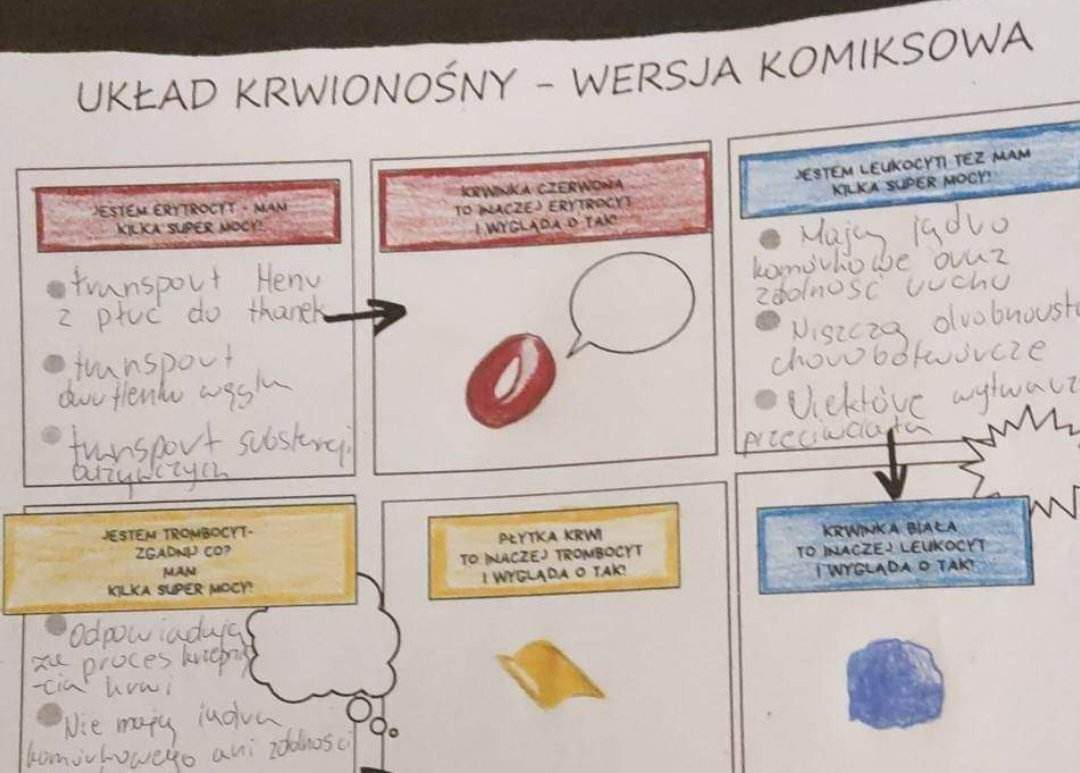 UKŁAD KRWIONOŚNY - WERSJA KOMIKSOWA
JESTEM ERYTROCYT - MAM
KILKA SUPER MOCY!
transport tlenu
z płuc do tkanek
transport
dwutlenku węgla
transport substancji
odżywczych
KRWINKA CZERWONA
TO INACZEJ ERYTROCYT
I WYGLĄDA O TAK!
JESTEM LEUKOCYT! TEŻ MAM
KILKA SUPER MOCY!
Mają jądro
komórkowe oraz
zdolność ruchu
Niszczą drobnoust
chorobotwórcze
Niektóre wytwarz
przeciwciała
JESTEM TROMBOCYT-
ZGADNIJ CO?
MAM
KILKA SUPER MOCY!
Odpowiadają
za proces krzepnię
-cia krwi
Nie mają jądra
komórkowego ani zdolności
PŁYTKA KRWI
TO INACZEJ TROMBOCYT
I WYGLĄDA O TAK!
KRWINKA BIAŁA
TO INACZEJ LEUKOCYT
I WYGLĄDA O TAK!